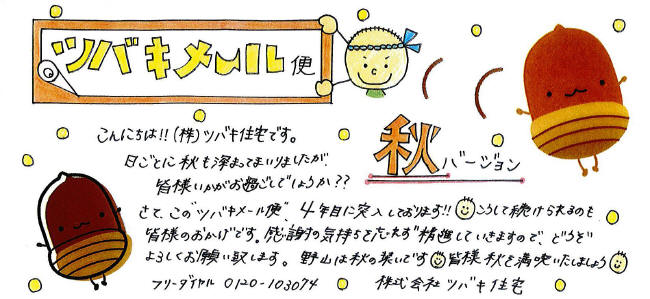 ツバキメール便
秋バージョン
こんにちは!!(株)ツバキ住宅です。
日ごとに秋も深まってまいりましたが、
皆様いかがお過ごしでしょうか??
さて、この"ツバキメール便"、4年目に突入しております!!こうして続けられるのも
皆様のおかげです。感謝の気持ちを忘れず精進していきますので、どうぞ
よろしくお願い致します。野山は秋の装いです 皆様 秋を満喫いたしましょう
フリーダイヤル 0120-103074 株式会社 ツバキ住宅